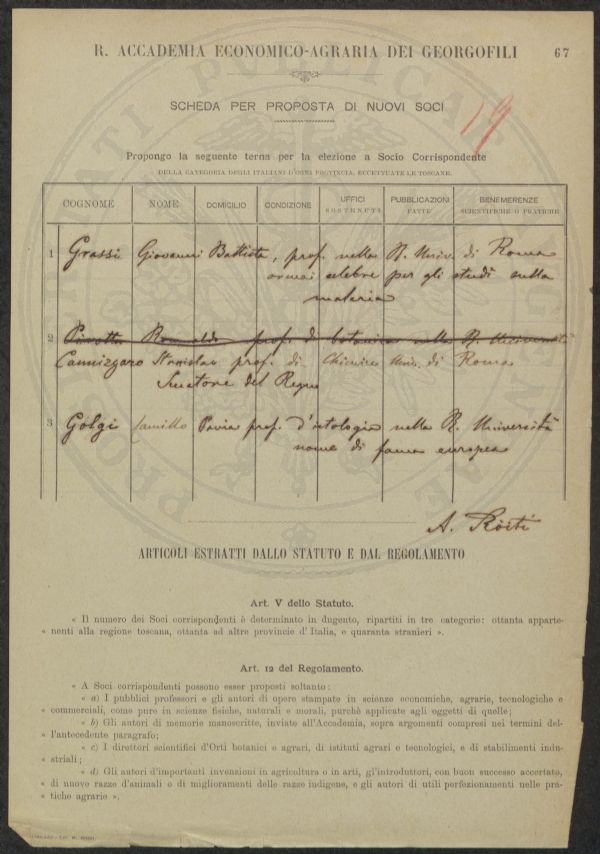 R. ACCADEMIA ECONOMICO-AGRARIA DEI GEORGOFILI
67
SCHEDA PER PROPOSTA DI NUOVI SOCI
19
Propongo la seguente terna per la elezione a Socio Corrispondente
DELLA CATEGORIA DEGLI ITALIANI D'OGNI PROVINCIA, ECCETTUATE LE TOSCANE.
COGNOME NOME DOMICILIO CONDIZIONE UFFICI SOSTENUTI PUBBLICAZIONI FATTE BENEMERENZE SCIENTIFICHE O PRATICHE
1 Grassi Giovanni Battista, prof. nella R. Univ. di Roma
ormai celebre per gli studi sulla
malaria
2 Pirotta Romualdo prof. di botanica nella R. Università
Cannizzaro Stanislao prof. di Chimica Univ. di Roma
Senatore del Regno
3 Golgi Camillo Pavia prof. d'istologia nella R. Università
nome di fama europea
A. Ròiti
ARTICOLI ESTRATTI DALLO STATUTO E DAL REGOLAMENTO
Art. V dello Statuto.
« Il numero dei Soci corrispondenti è determinato in dugento, ripartiti in tre categorie: ottanta apparte-
« nenti alla regione toscana, ottanta ad altre provincie d'Italia, e quaranta stranieri ».
Art. 12 del Regolamento.
« A Soci corrispondenti possono esser proposti soltanto:
« a) I pubblici professori e gli autori di opere stampate in scienze economiche, agrarie, tecnologiche e
« commerciali, come pure in scienze fisiche, naturali e morali, purchè applicate agli oggetti di quelle;
« b) Gli autori di memorie manoscritte, inviate all'Accademia, sopra argomenti compresi nei termini del-
« l'antecedente paragrafo;
« c) I direttori scientifici d'Orti botanici e agrari, di istituti agrari e tecnologici, e di stabilimenti indu-
« striali;
« d) Gli autori d'importanti invenzioni in agricoltura o in arti, gl'introduttori, con buon successo accertato,
« di nuove razze d'animali o di miglioramenti delle razze indigene, e gli autori di utili perfezionamenti nelle pra-
« tiche agrarie ».